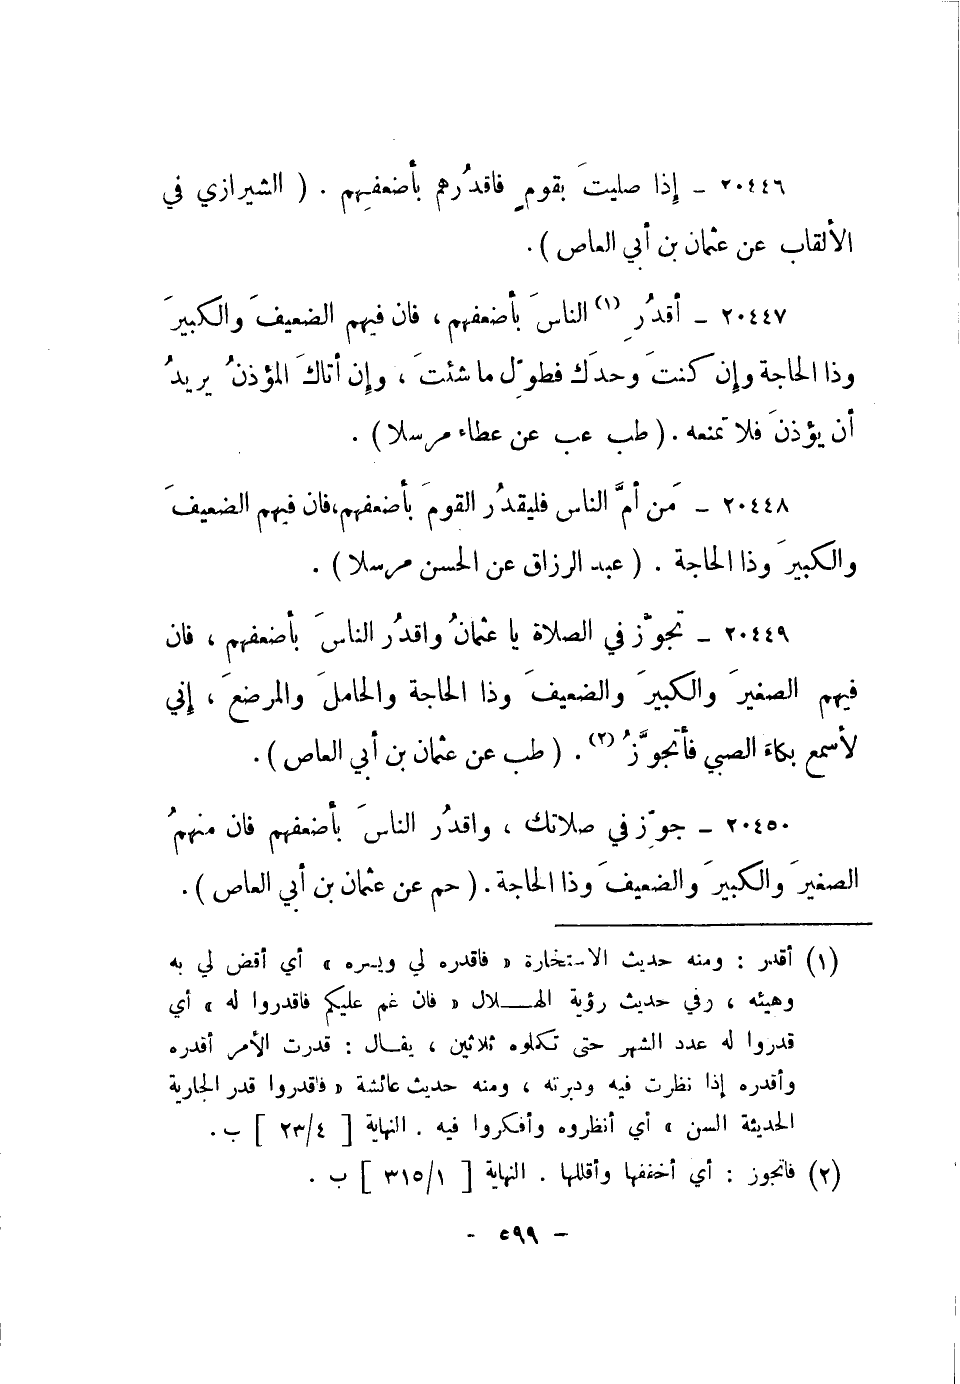 ٢٠٤٤٦ ـ إِذا صليتَ بقومٍ فاقدُرهم بأضعفِهم . ( الشيرازي في
الألقاب عن عثمان بن أبي العاص ) .
٢٠٤٤٧ ـ أقدُرِ (١) الناسَ بأضعفهم ، فان فيهم الضعيفَ والكبيرَ
وذا الحاجة وإِن كنتَ وحدَك فطوِّل ما شئتَ ، وإِن أتاكَ المؤذنُ يريدُ
أن يؤذنَ فلا تمنعه . ( طب عب عن عطاء مرسلا ) .
٢٠٤٤٨ ـ مَن أمَّ الناس فليقدُر القومَ بأضعفهم،فان فيهم الضعيفَ
والكبيرَ وذا الحاجة . ( عبد الرزاق عن الحسن مرسلا ) .
٢٠٤٤٩ ـ تجوَّز في الصلاة يا عثمانُ واقدُر الناسَ بأضعفهم ، فان
فيهم الصغيرَ والكبيرَ والضعيفَ وذا الحاجة والحاملَ والمرضعَ ، إِني
لأسمع بكاءَ الصبي فأتجوَّزُ (٢) . ( طب عن عثمان بن أبي العاص ) .
٢٠٤٥٠ ـ جوِّز في صلاتك ، واقدُر الناسَ بأضعفهم فان منهمُ
الصغيرَ والكبيرَ والضعيفَ وذا الحاجة . ( حم عن عثمان بن أبي العاص ) .
(١) أقدر : ومنه حديث الاستخارة « فاقدره لي ويسره » أي أقض لي به
وهيئه ، وفي حديث رؤية الهـلال « فان غم عليكم فاقدروا له » أي
قدروا له عدد الشهر حتى تكملوه ثلاثين ، يقـال : قدرت الأمر أقدره
وأقدره إذا نظرت فيه ودبرته ، ومنه حديث عائشة « فاقدروا قدر الجارية
الحديثة السن » أي أنظروه وأفكروا فيه . النهاية [ ٢٣/٤ ] ب .
(٢) فاتجوز : أي أخففها وأقللها . النهاية [ ٣١٥/١ ] ب .
- ٥٩٩ -